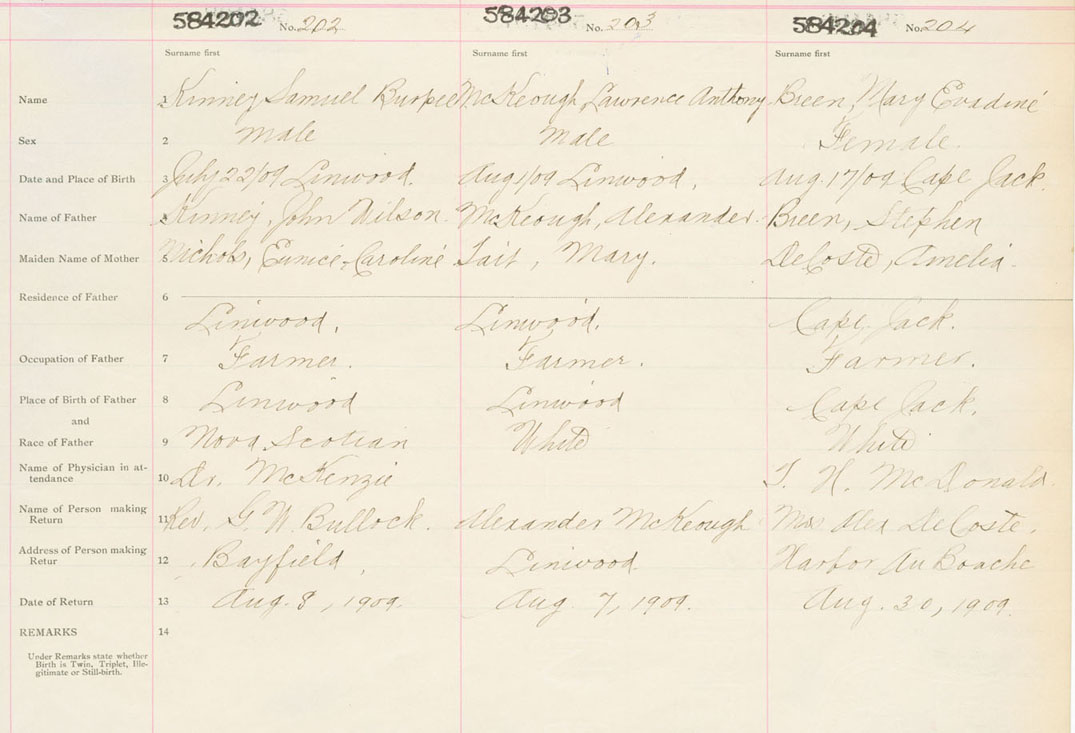 584202 No. 202 584203 No. 203 584204 No. 204
Surname first Surname first Surname first
Name 1 Kinney Samuel Burpee McKeough, Lawrence Anthony Breen, Mary Evadine
Sex 2 Male Male Female.
Date and Place of Birth 3 July 22/09 Linwood. Aug 1/09 Linwood, Aug. 17/09 Cape Jack.
Name of Father 4 Kinney, John Wilson. McKeough, Alexander. Breen, Stephen
Maiden Name of Mother 5 Nichols, Eunice Caroline Tait, Mary. DeCoste, Amelia.
Residence of Father 6
Linwood, Linwood. Cape Jack.
Occupation of Father 7 Farmer. Farmer. Farmer.
Place of Birth of Father 8 Linwood Linwood Cape Jack.
and
Race of Father 9 Nova Scotian White White
Name of Physician in at-
tendance 10 Dr. McKenzie T. H. McDonald.
Name of Person making
Return 11 Rev. G. W. Bullock. Alexander McKeough Mrs Alex DeCoste.
Address of Person making
Retur 12 Bayfield, Linwood Harbor Au Boache
Date of Return 13 Aug. 8, 1909. Aug. 7, 1909. Aug. 30, 1909.
REMARKS 14
Under Remarks state whether
Birth is Twin, Triplet, Ille-
gitimate or Still-birth.